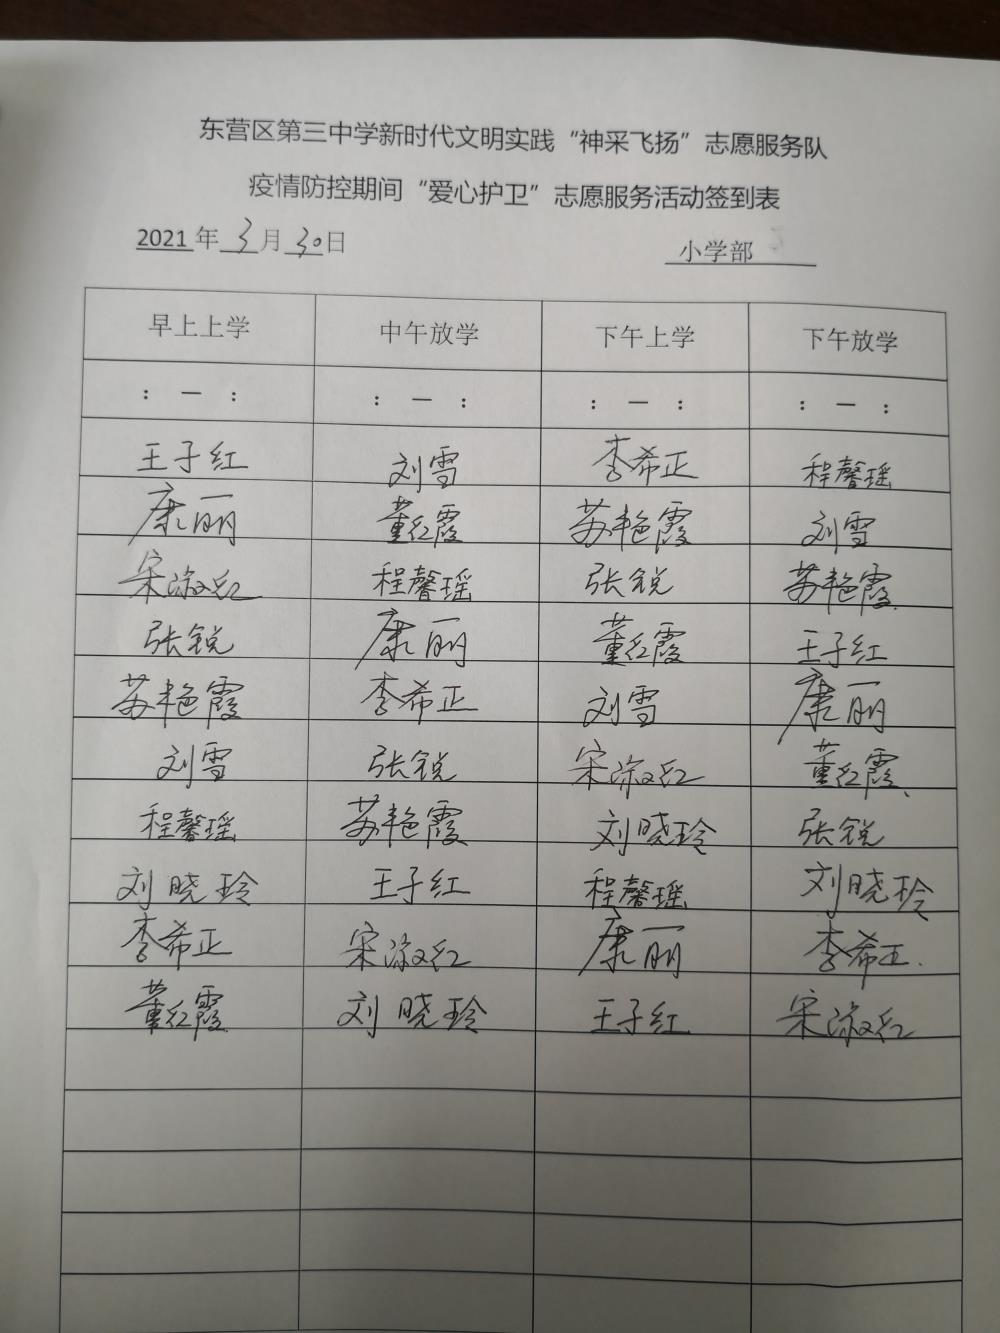 东营区第三中学新时代文明实践“神采飞扬”志愿服务队
疫情防控期间“爱心护卫”志愿服务活动签到表
2021年3月30日 小学部
早上上学 中午放学 下午上学 下午放学
: — : : — : : — : : — :
王子红 刘雪 李希正 程馨瑶
康丽 董红霞 苏艳霞 刘雪
宋淑红 程馨瑶 张锐 苏艳霞
张锐 康丽 董红霞 王子红
苏艳霞 李希正 刘雪 康丽
刘雪 张锐 宋淑红 董红霞
程馨瑶 苏艳霞 刘晓玲 张锐
刘晓玲 王子红 程馨瑶 刘晓玲
李希正 宋淑红 康丽 李希正
董红霞 刘晓玲 王子红 宋淑红